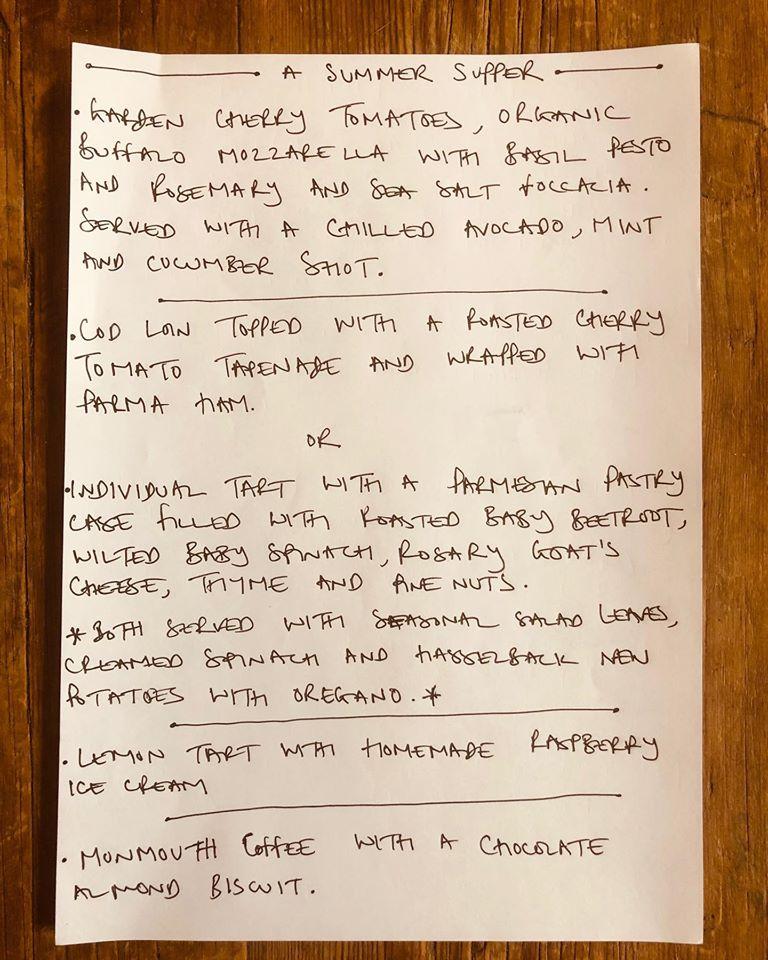 A SUMMER SUPPER
· GARDEN CHERRY TOMATOES, ORGANIC
BUFFALO MOZZARELLA WITH BASIL PESTO
AND ROSEMARY AND SEA SALT FOCCACIA.
SERVED WITH A CHILLED AVOCADO, MINT
AND CUCUMBER SHOT.
· COD LOIN TOPPED WITH A ROASTED CHERRY
TOMATO TAPENADE AND WRAPPED WITH
PARMA HAM.
OR
· INDIVIDUAL TART WITH A PARMESAN PASTRY
CASE FILLED WITH ROASTED BABY BEETROOT,
WILTED BABY SPINACH, ROSARY GOAT'S
CHEESE, THYME AND PINE NUTS.
* BOTH SERVED WITH SEASONAL SALAD LEAVES,
CREAMED SPINACH AND HASSELBACK NEW
POTATOES WITH OREGANO. *
· LEMON TART WITH HOMEMADE RASPBERRY
ICE CREAM
· MONMOUTH COFFEE WITH A CHOCOLATE
ALMOND BISCUIT.